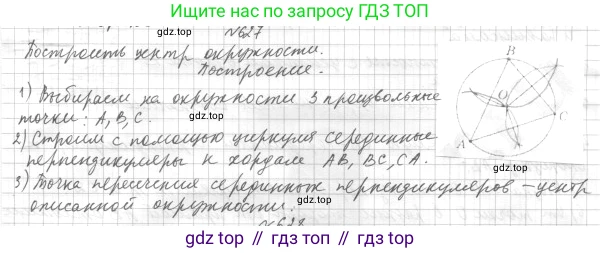 Ищите нас по запросу ГДЗ ТОП
№627
Построить центр окружности.
Построение.
1) Выбираем на окружности 3 произвольные
точки: A, B, C.
2) Строим с помощью циркуля серединные
перпендикуляры к хордам AB, BC, CA.
3) Точка пересечения серединных перпендикуляров – центр
описанной окружности.
№628
B
O
C
A
gdz top // гдз топ // gdz.top